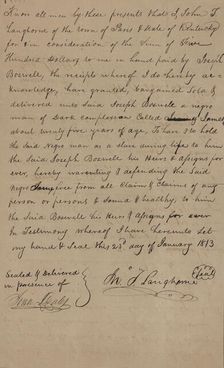 Know all men by these presents that I, John T.
Langhorne of the town of Paris & State of Kentucky
for & in consideration of the Sum of Five
Hundred Dollars to me in hand paid by Joseph
Boswell, the receipt whereof I do hereby ac=
knowledge, have granted, bargained Sold &
delivered unto Said Joseph Boswell a negro
man of dark complexion Called
about twenty five years of age, To have & to hold
the Said Negro man as a slave during life to him
the Said Joseph Boswell his Heirs & assigns for
ever, hereby warenting & defending the Said
negro from all Claim & Claims of any
person or persons & Sound & healthy, to him
the Said Boswell his Heirs & assigns for ever
In Testimony whereof I have hereunto Set
my hand & Seal this 23d day of January 1813
Sealed & Delivered
in presence of
Jno T Langhorne
Seal